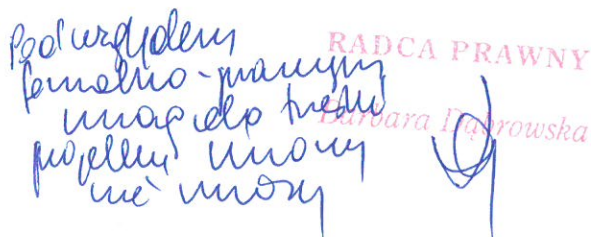 Pod względem
formalno-prawnym
uwag do treści
projektu umowy
nie wnoszę
RADCA PRAWNY
Barbara Dąbrowska